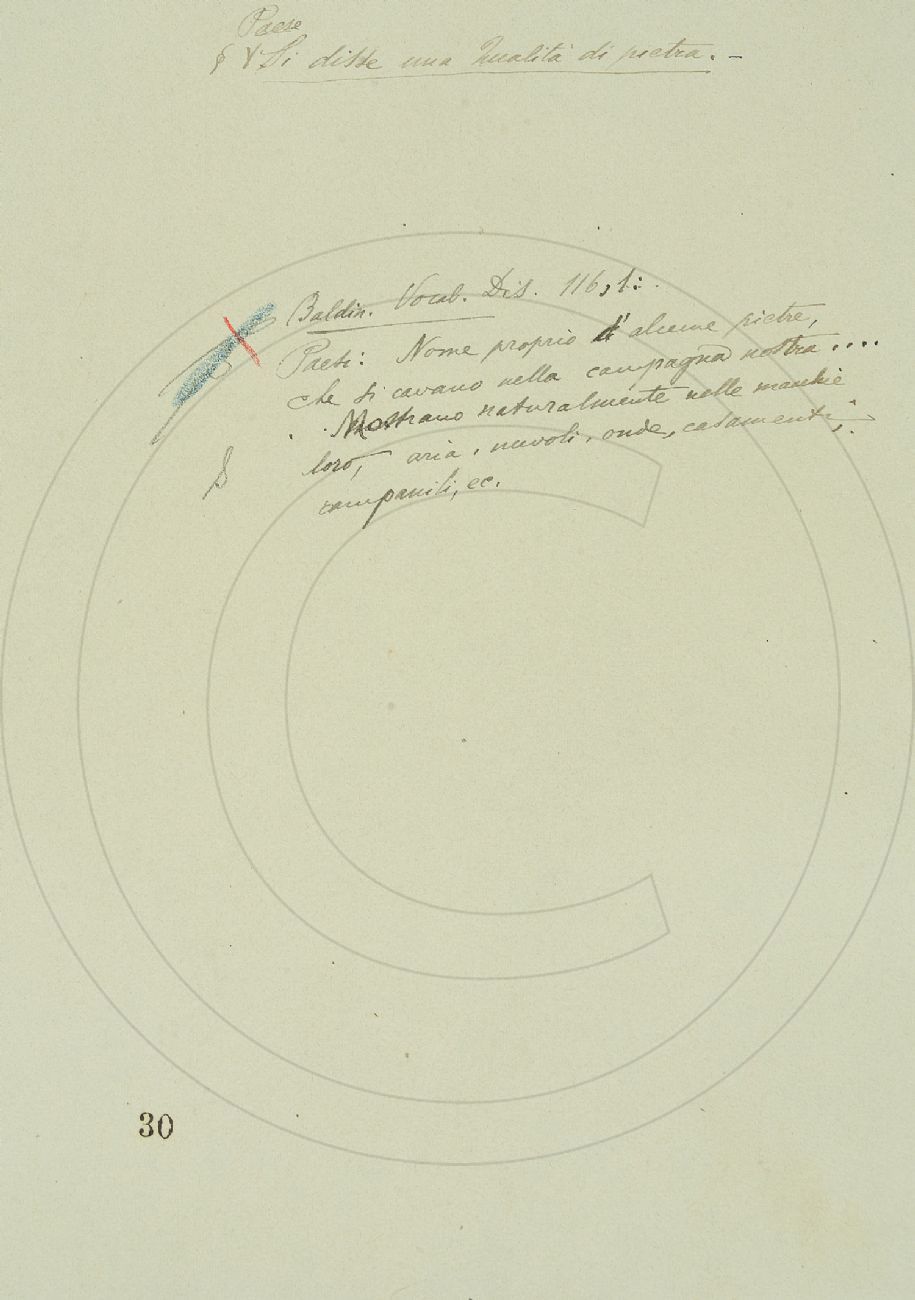 Paese
§ Si disse una Qualità di pietra. –
Baldin. Vocab. Dis. 116, 1:
Paesi: Nome proprio d'alcune pietre,
che si cavano nella campagna nostra ....
Mostrano naturalmente nelle macchie
loro, aria, nuvoli, onde, casamenti,
campanili, ec.
S
30